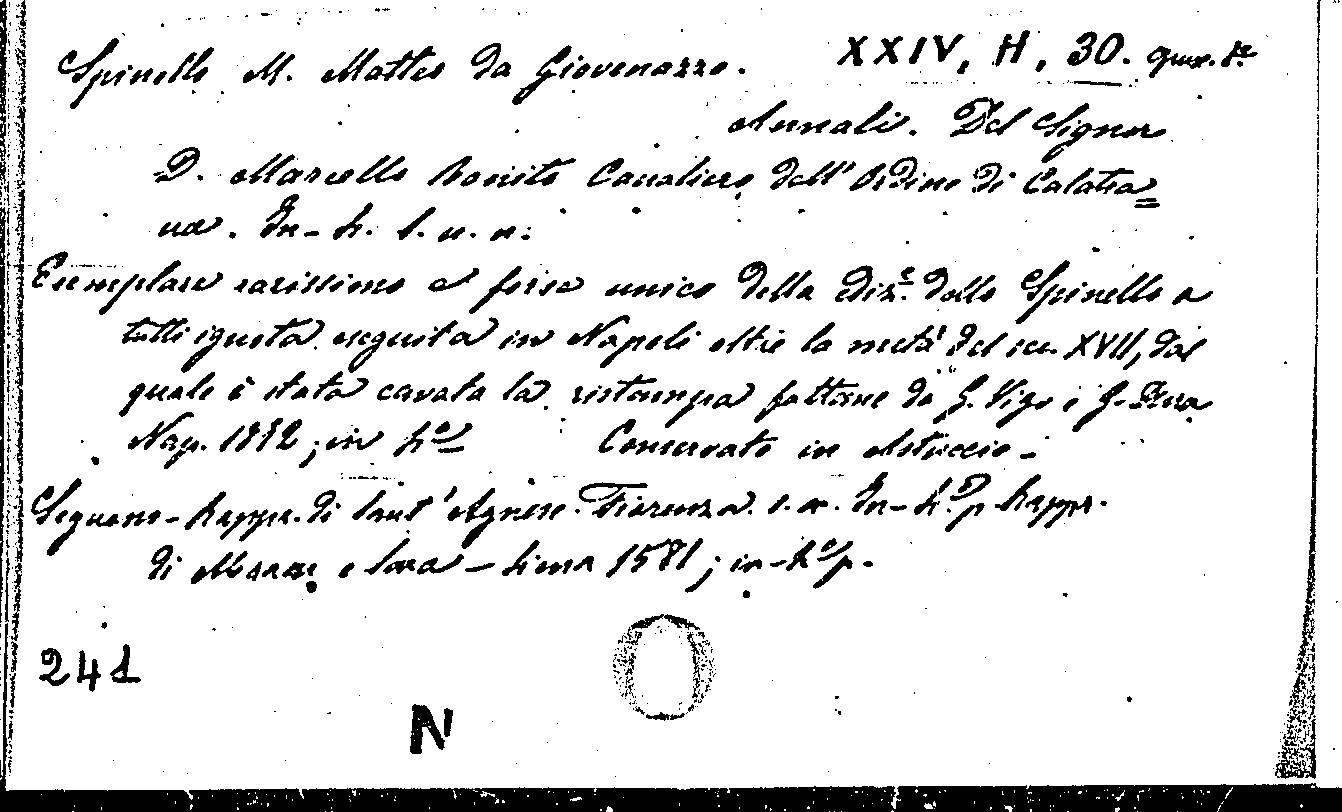 Spinello M. Matteo da Giovenazzo. XXIV, H, 30.
Annali. Del Signor
D. Marcello Bonito Cavaliero dell' Ordine di Calatra=
ua. In-4. s. u. n.
Esemplare rarissimo e forse unico della ediz.e dello Spinello a
tutti ignota eseguita in Napoli oltre la metà del sec. XVII, dal
quale è stata cavata la ristampa fattane da G. Vigo e G. Dura
Nap. 1872; in 4º Conservato in Astuccio -
Seguono - Rappr. di Sant' Agnese. Fiorenza. s. a. In-4.º p. Rappr.
di - Siena 1581; in-4º p.
241
N